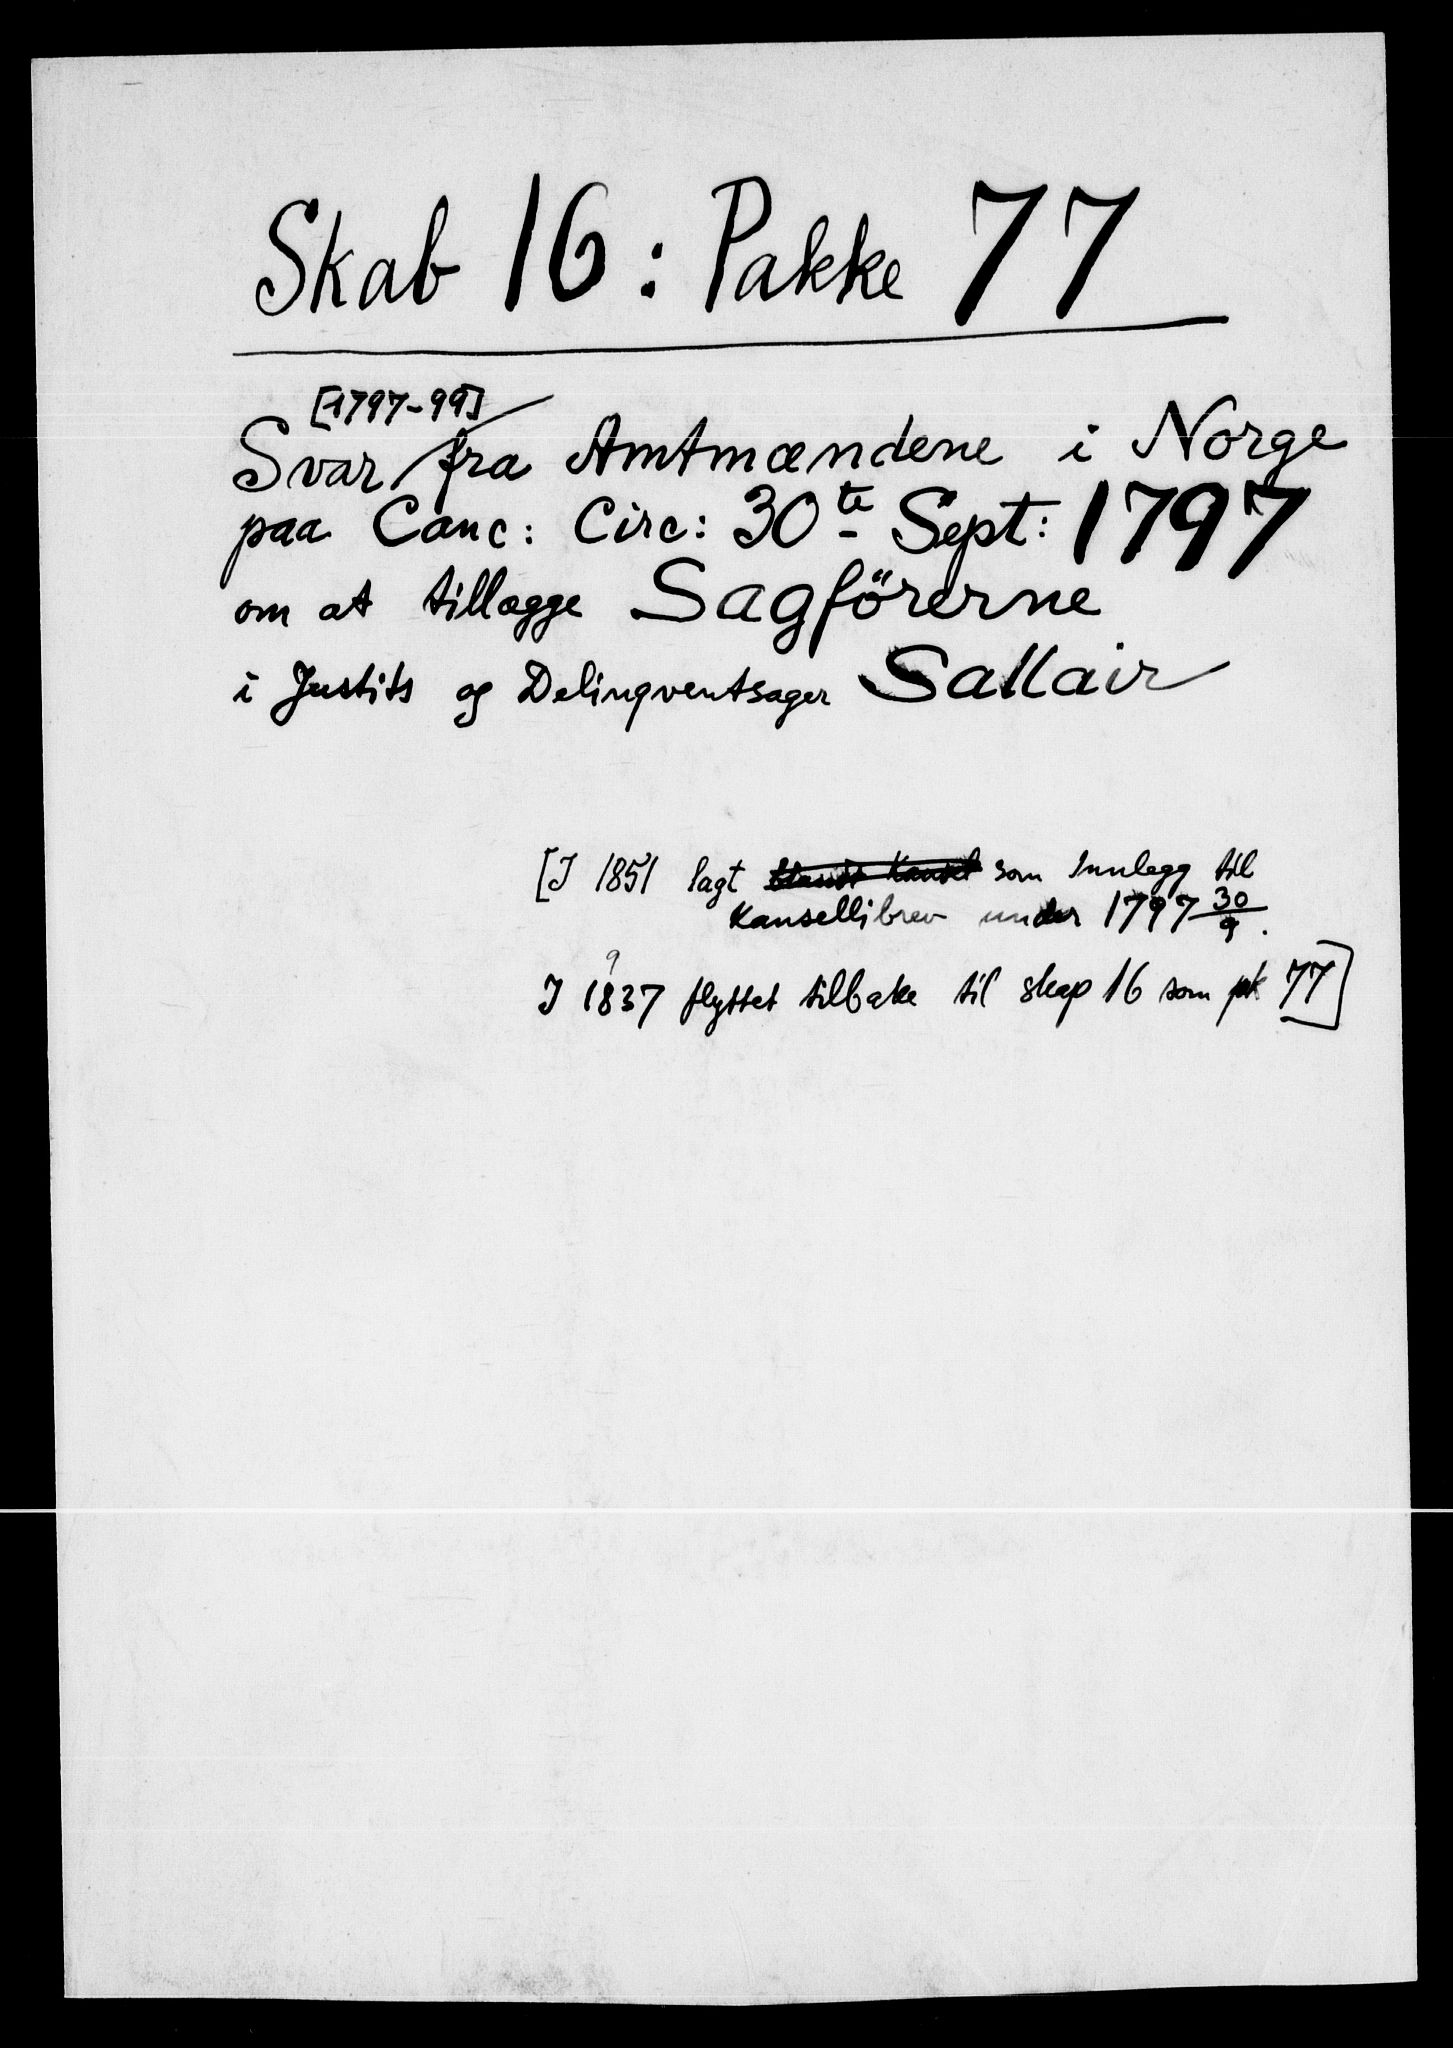 Skab 16: Pakke 77
[1797-99]
Svar fra Amtmændene i Norge
paa Canc: Circ: 30te Sept: 1797
om at tillægge Sagförerne
i Justits og Delinqventsager Sallair
[I 1851 lagt blandt Kansel som Innlegg til
Kansellibrev under 1797 30/9.
9
I 1837 flyttet tilbake til skap 16 som pk 77]